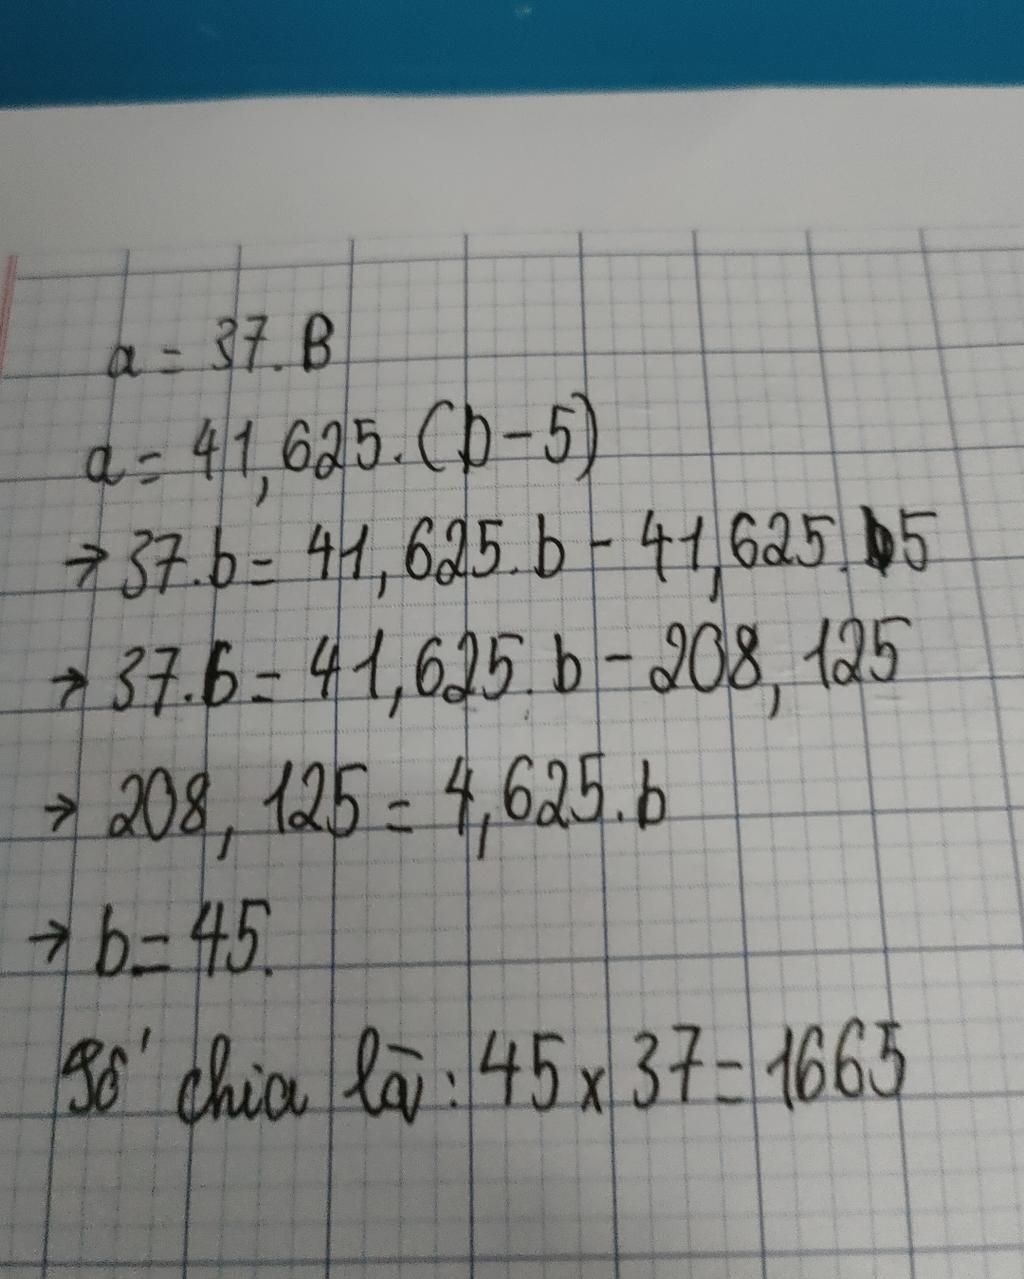 a = 37. B
a = 41,625. (b - 5)
→ 37. b = 41,625. b - 41,625. 5
→ 37. b = 41,625. b - 208,125
→ 208,125 = 4,625. b
→ b = 45.
Số chia là: 45 x 37 = 1665